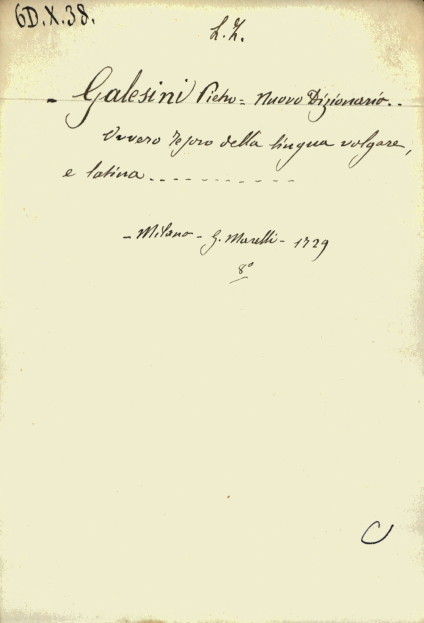 6D.X.38.
L.Z.
- Galesini Pietro = Nuovo Dizionario..
Ovvero Tesoro della lingua volgare,
e latina..........
- Milano - G. Marelli - 1729
8°
C